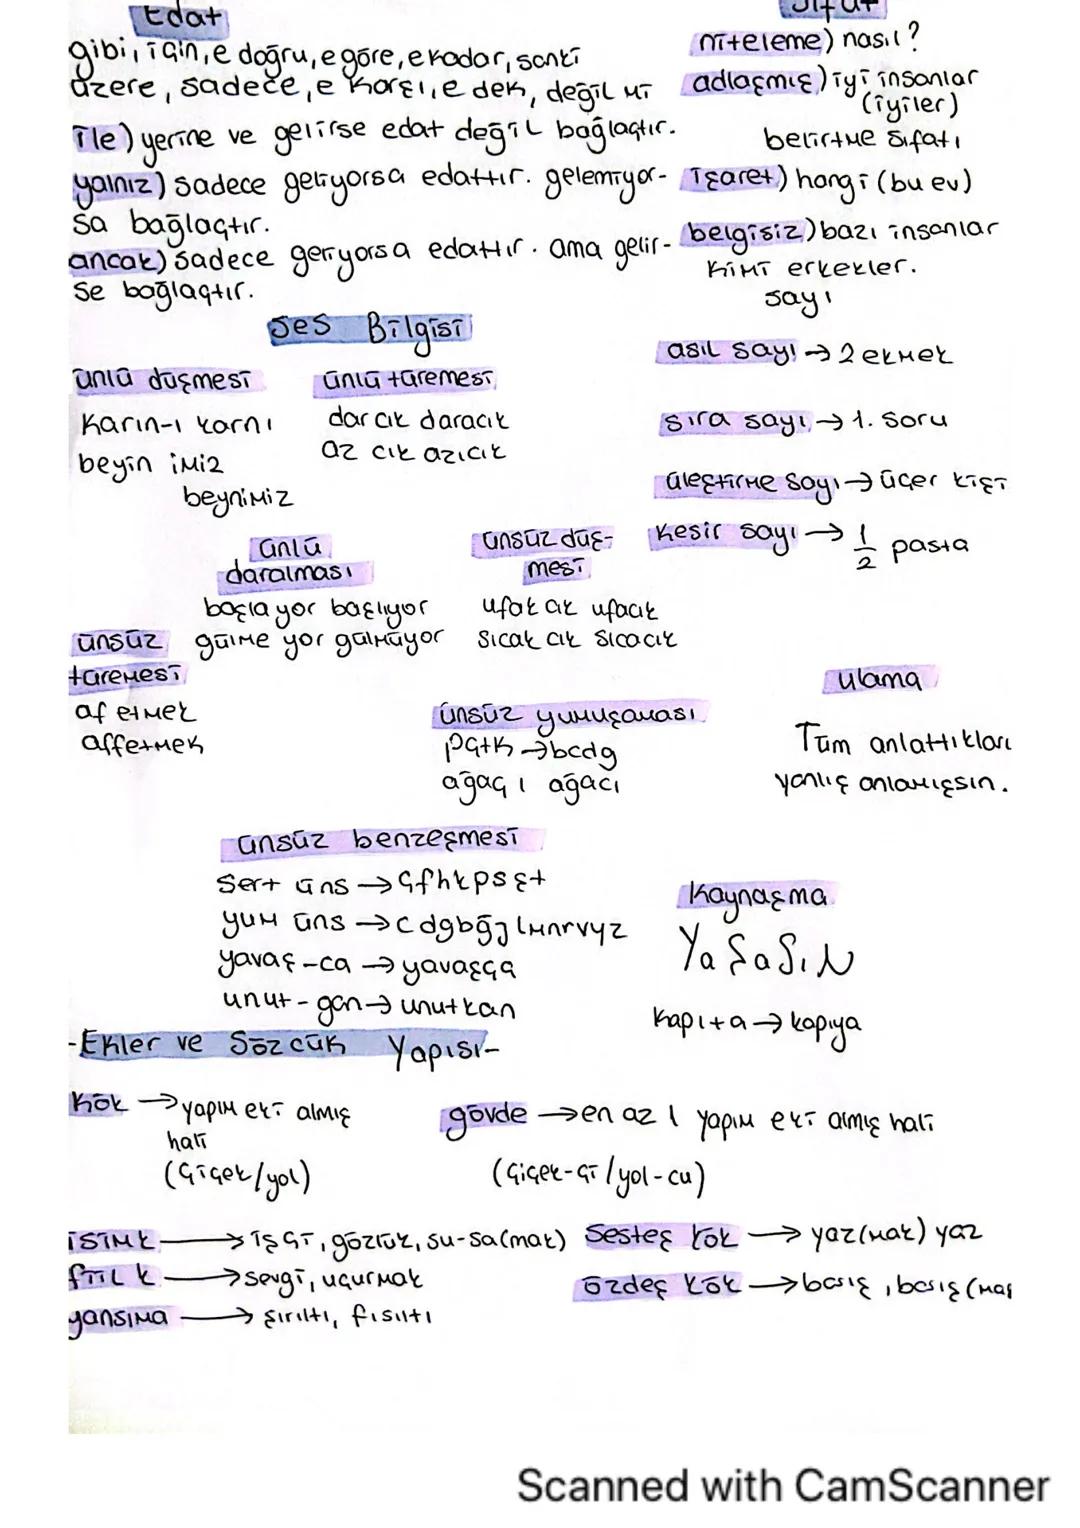 Edat
gibi, için, e doğru, e göre, e kadar, sanki
üzere, sadece, e karşı, e dek, değil mi
ile) yerine ve gelirse edat değil bağlaçtır.
yalnız) sadece geliyorsa edattır. gelemiyor-
sa bağlaçtır.
ancak) sadece geliyorsa edattır. ama gelir-
se bağlaçtır.
Sıfat
niteleme) nasıl?
adlaşmış) iyi insanlar
(iyiler)
belirtme sıfatı
işaret) hangi (bu ev)
belgisiz) bazı insanlar
kimi erkekler.
sayı
asıl sayı → 2 ekmek
sıra sayı → 1. soru
üleştirme sayı → üçer kişi
kesir sayı → 1/2 pasta
Ses Bilgisi
ünlü düşmesi
karın-ı karnı
beyin imiz
beynimiz
ünlü türemesi
dar cık daracık
az cık azıcık
ünlü
daralması
başla yor başlıyor
gülme yor gülmüyor
ünsüz düş-
mesi
ufak cık ufacık
sıcak cık sıcacık
ünsüz
türemesi
af etmek
affetmek
ünsüz yumuşaması
pçtk → bcdg
ağaç ı ağacı
ulama
Tüm anlattıkları
yanlış anlamışsın.
ünsüz benzeşmesi
Sert üns → çfhkpsşt
yum üns → cdgbğjlmnrvyz
yavaş-ca → yavaşça
unut-gan → unutkan
kaynaşma
YaŞaSıN
kapı+a → kapıya
-Ekler ve Sözcük Yapısı-
kök → yapım eki almış
hali
(çiçek/yol)
gövde → en az 1 yapım eki almış hali
(çiçek-çi/yol-cu)
isim k → işçi, gözlük, su-sa(mak)
fiil k → sevgi, uçurmak
yansıma → şırıltı, fısıltı
Sesteş kök → yaz(mak) yaz
özdeş kök → barış, barış(mak
Scanned with CamScanner